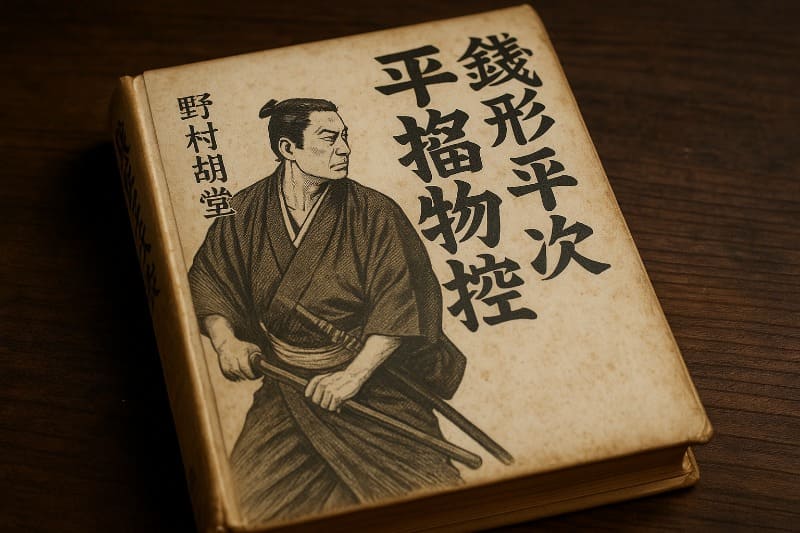 銭形平次
平物控
野村胡堂